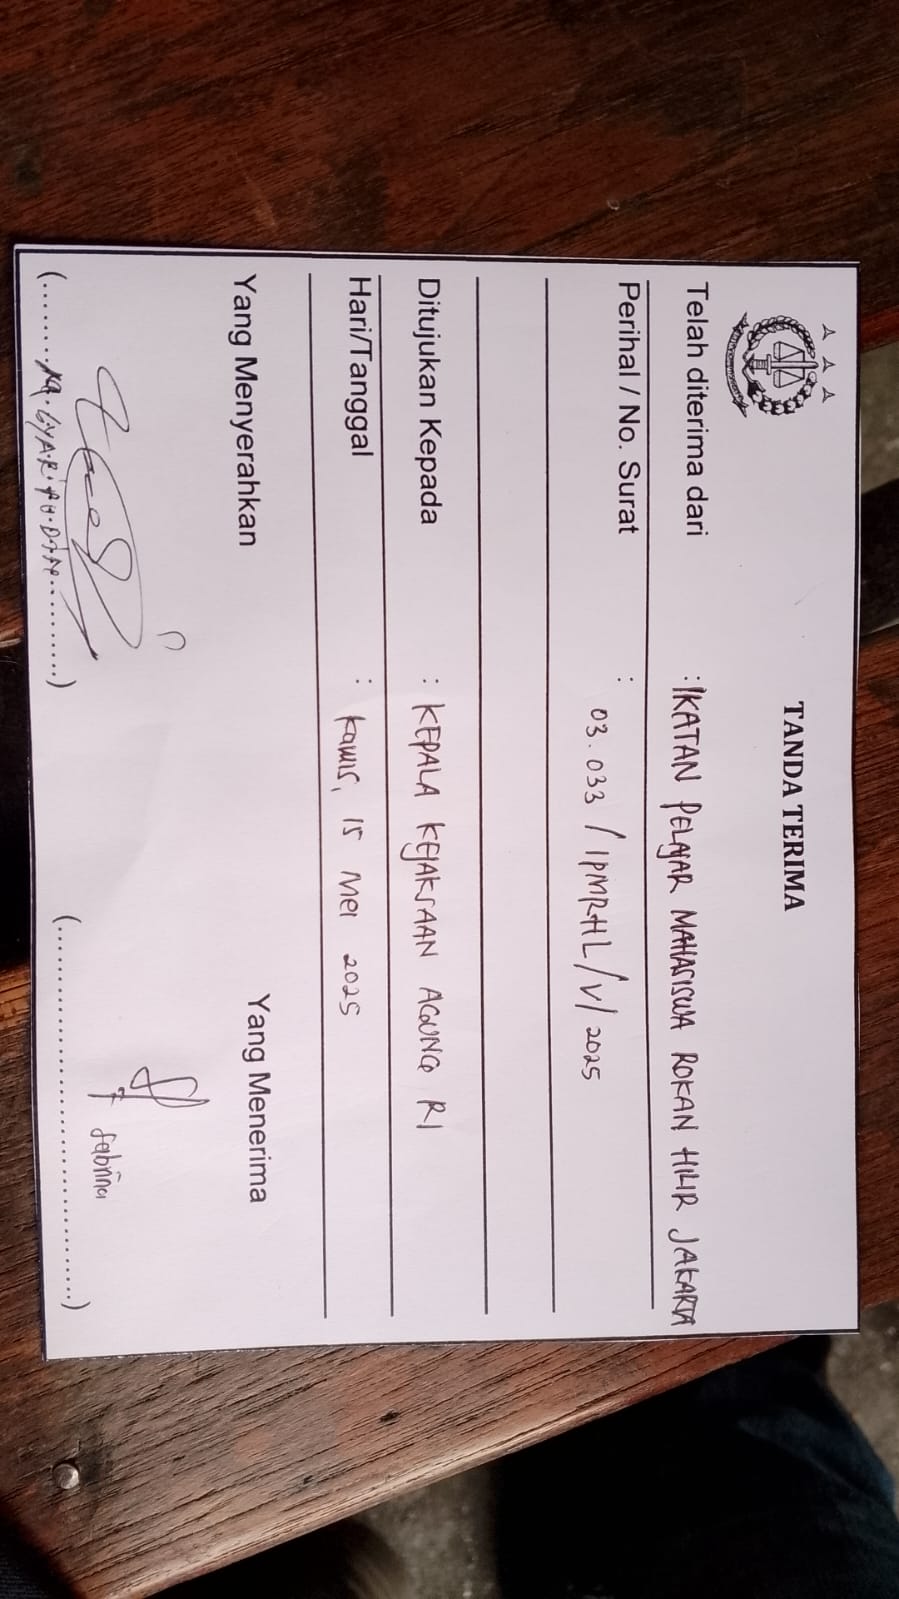 TANDA TERIMA
Telah diterima dari : IKATAN PELAJAR MAHASISWA ROKAN HILIR JAKARTA
Perihal / No. Surat :
03.033 / IPMRHL/V/2025
Ditujukan Kepada : KEPALA KEJAKSAAN AGUNG RI
Hari/Tanggal : Kamis, 15 Mei 2025
Yang Menyerahkan Yang Menerima
Sabrina